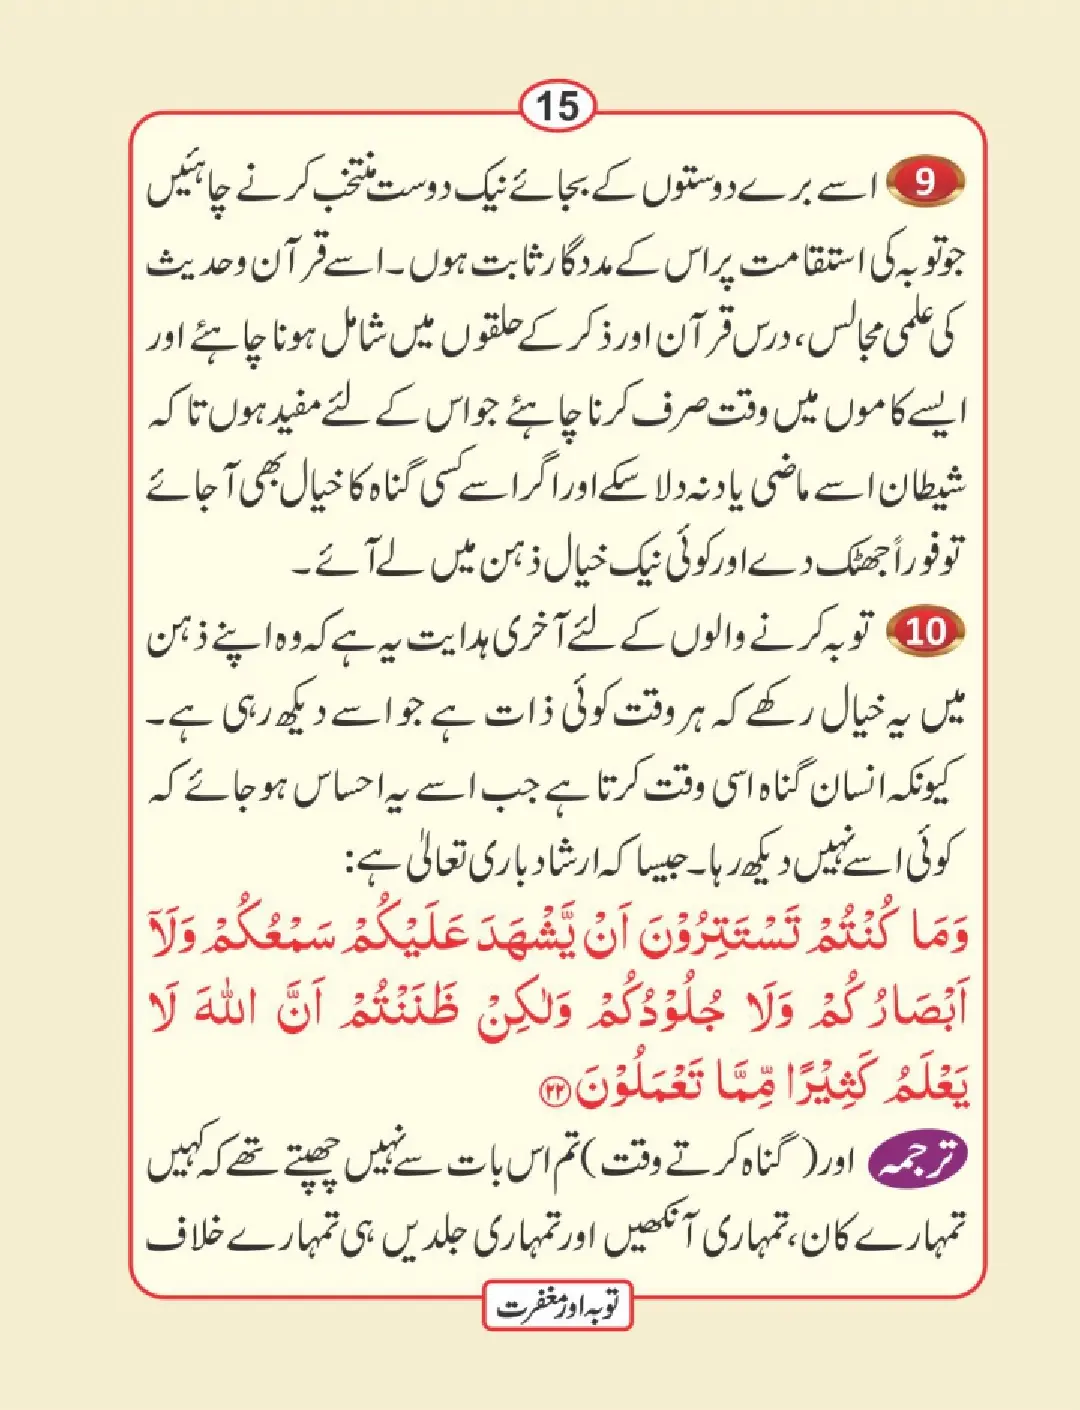 15
9 اسے برے دوستوں کے بجائے نیک دوست منتخب کرنے چاہئیں
جو توبہ کی استقامت پر اس کے مددگار ثابت ہوں۔ اسے قرآن وحدیث
کی علمی مجالس، درس قرآن اور ذکر کے حلقوں میں شامل ہونا چاہئے اور
ایسے کاموں میں وقت صرف کرنا چاہئے جو اس کے لئے مفید ہوں تاکہ
شیطان اسے ماضی یاد نہ دلا سکے اور اگر اسے کسی گناہ کا خیال بھی آجائے
تو فوراً جھٹک دے اور کوئی نیک خیال ذہن میں لے آئے۔
10 توبہ کرنے والوں کے لئے آخری ہدایت یہ ہے کہ وہ اپنے ذہن
میں یہ خیال رکھے کہ ہر وقت کوئی ذات ہے جو اسے دیکھ رہی ہے۔
کیونکہ انسان گناہ اسی وقت کرتا ہے جب اسے یہ احساس ہو جائے کہ
کوئی اسے نہیں دیکھ رہا۔ جیسا کہ ارشاد باری تعالیٰ ہے:
وَمَا كُنْتُمْ تَسْتَتِرُوْنَ اَنْ يَّشْهَدَ عَلَيْكُمْ سَمْعُكُمْ وَلَآ
اَبْصَارُكُمْ وَلَا جُلُوْدُكُمْ وَلٰكِنْ ظَنَنْتُمْ اَنَّ اللّٰهَ لَا
يَعْلَمُ كَثِيْرًا مِّمَّا تَعْمَلُوْنَ ﴿۲۲﴾
ترجمہ اور (گناہ کرتے وقت) تم اس بات سے نہیں چھپتے تھے کہ کہیں
تمہارے کان، تمہاری آنکھیں اور تمہاری جلدیں ہی تمہارے خلاف
توبہ اور مغفرت